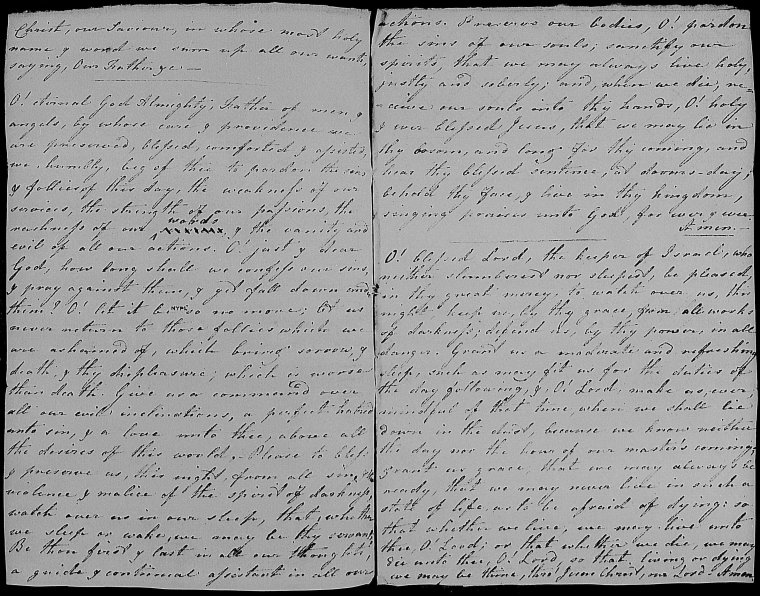 Christ, our Saviour, in whose most holy
name & word we sum up all our wants,
saying, Our Father &c —
O! eternal God Almighty, Father of men, &
angels, by whose care & providence we
are preserved, blessed, comforted & assisted,
we, humbly, beg of thee to pardon the sins,
& follies of this day, the weakness of our
services, the strength of our passions, the
words
rashness of our xxxxxx, & the vanity and
evil of all our actions. O! just & dear
God, how long shall we confess our sins,
& pray against them, & yet fall down under
them? O! let it be so no more; let us
never return to those follies which we
are ashamed of, which bring sorrow, &
death, & thy displeasure; which is worse
than death. Give us a command over
all our evil inclinations, a perfect hatred
unto sin, & a love unto thee, above all
the desires of this world. Please to bless
& preserve us, this night, from all sin, the
violence & malice of the spirit of darkness,
watch over us in our sleep, that whether
we sleep or wake, we may be thy servants.
Be thou first & last in all our thoughts!
a guide & continual assistant in all our
actions. Preserve our bodies, O! pardon
the sins of our souls; sanctify our
spirits, that we may always live holy,
justly and soberly; and, when we die, re-
=ceive our souls into thy hands, O! holy
& ever blessed Jesus, that we may lie in
thy bosom, and long for thy coming, and
hear thy blessed sentence, at dooms-day;
behold thy face, & live in thy kingdom,
singing praises unto God, for ever & ever
Amen.—
O! blessed Lord, the keeper of Israel, who
neither slumberest nor sleepest, be pleased,
in thy great mercy, to watch over us, this
night keep us, by thy grace, from all works
of darkness; defend us, by thy power, in all
danger. Grant us a moderate and refreshing
sleep, such as may fit us for the duties of
the day following, & O! Lord, make us, ever,
mindful of that time, when we shall lie
down in the dust, because we know neither
the day nor the hour of our master's coming;
grant us grace, that we may always be
ready, that we may never live in such a
state of life, as to be afraid of dying: so
that whether we live, we may live unto
thee, O! Lord; or that whether we die, we may
die unto thee, O! Lord, so that, living or dying
we may be thine, thro' Jesus Christ, our Lord! Amen